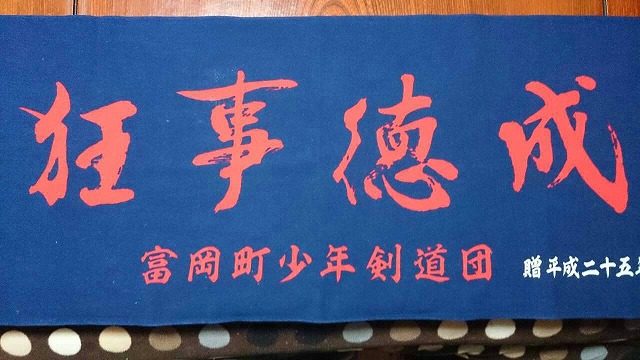 狂事徳成
富岡町少年剣道団
贈平成二十五年